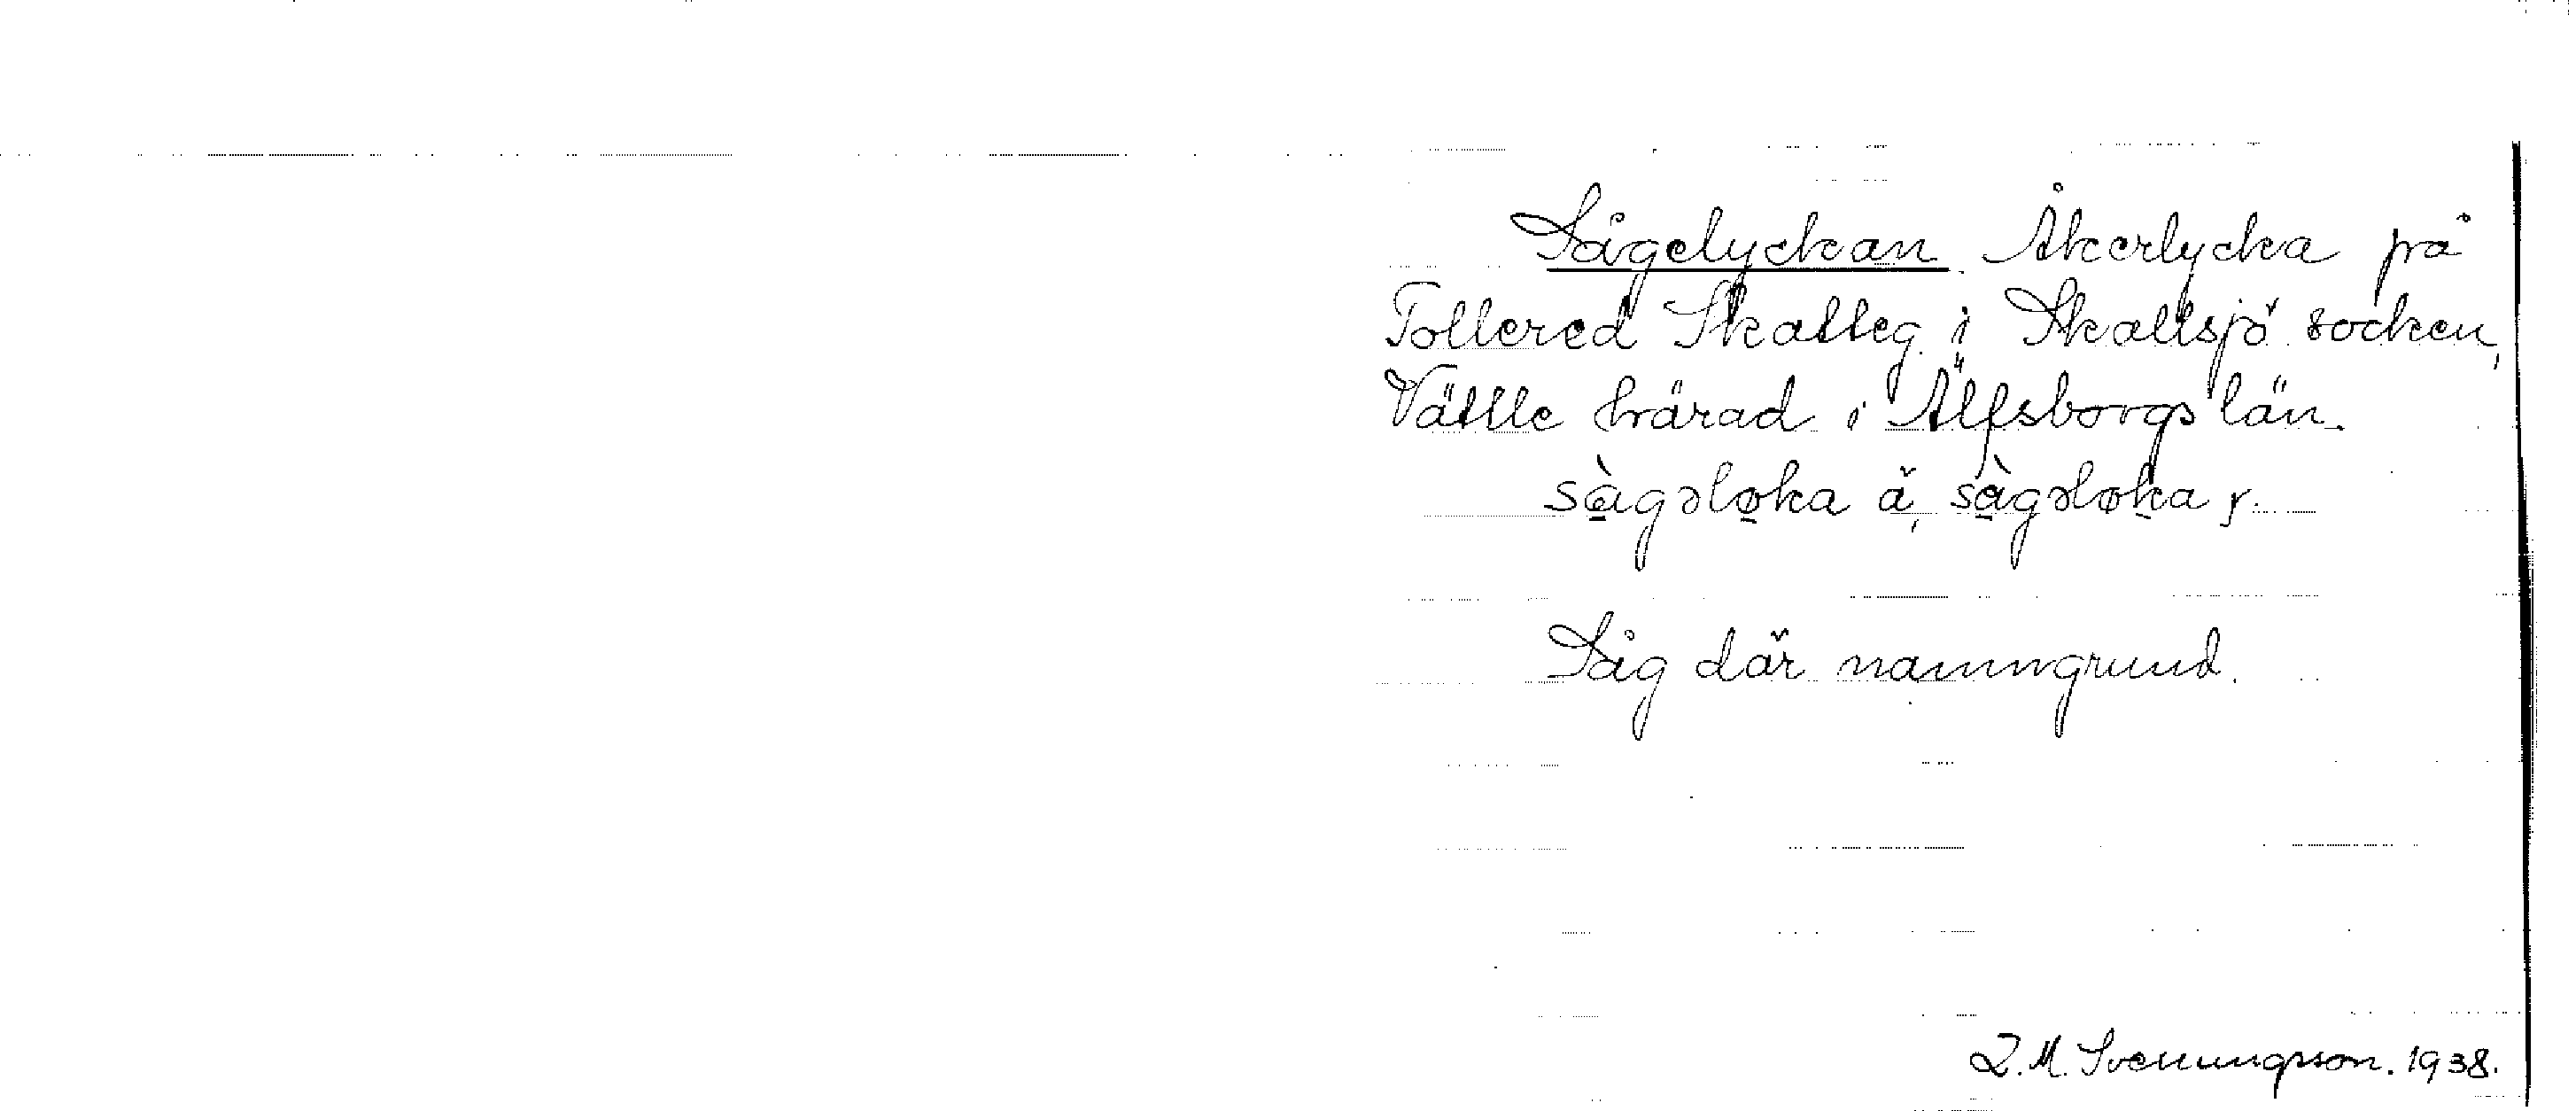 Sågelyckan Åkerlycka på
Tollered Skatteg. i Skallsjö socken,
Vättle härad i Älfsborgs län.
sàgəløka ä, sàgəløka r.
Såg där namngrund.
L. M. Svenungsson. 1938.